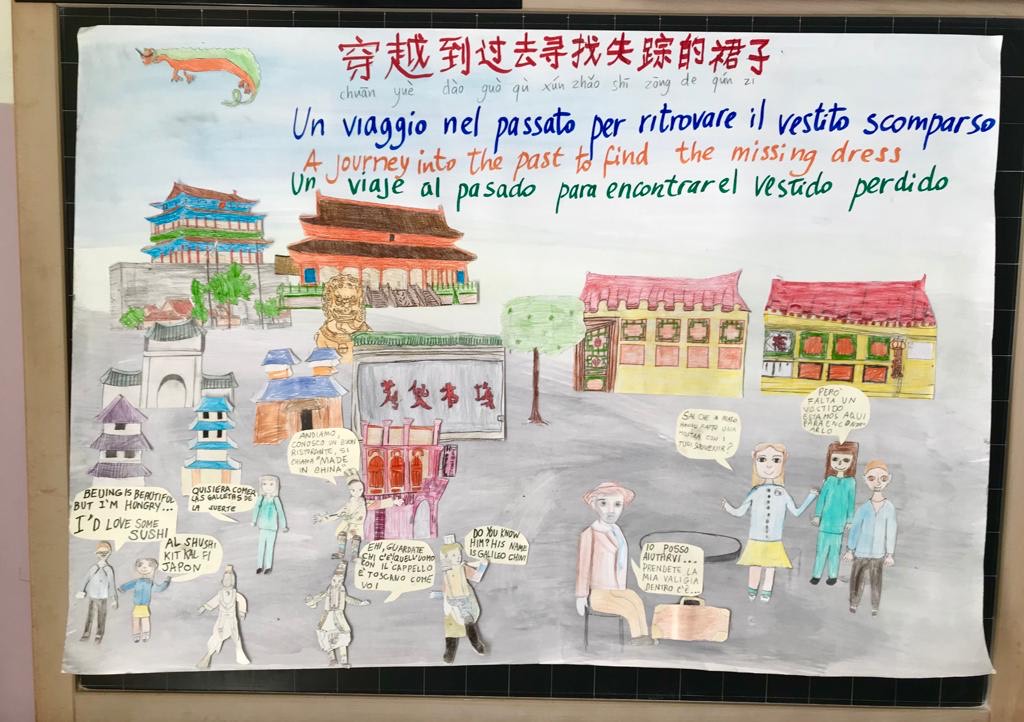 穿越到过去寻找失踪的裙子
chuān yuè dào guò qù xún zhǎo shī zōng de qún zi
Un viaggio nel passato per ritrovare il vestito scomparso
A journey into the past to find the missing dress
Un viaje al pasado para encontrar el vestido perdido
BEIJING IS BEAUTIFUL
BUT I'M HUNGRY...
I'D LOVE SOME
SUSHI
AL SHUSHI
KIT KAL FI
JAPON
QUISIERA COMER
LAS GALLETAS DE
LA SUERTE
ANDIAMO,
CONOSCO UN BUON
RISTORANTE, SI
CHIAMA "MADE
IN CHINA"
EHI, GUARDATE
CHI C'È! QUELL'UOMO
CON IL CAPPELLO
È TOSCANO COME
VOI
DO YOU KNOW
HIM? HIS NAME
IS GALILEO CHINI
IO POSSO
AIUTARVI...
PRENDETE LA
MIA VALIGIA
DENTRO C'È...
SAI CHE A
HANNO FATTO UNA
MOSTRA CON I
TUOI SOUVENIR?
PERÒ
FALTA UN
VESTIDO
ESTAMOS AQUI
PARA ENCONTR
ARLO